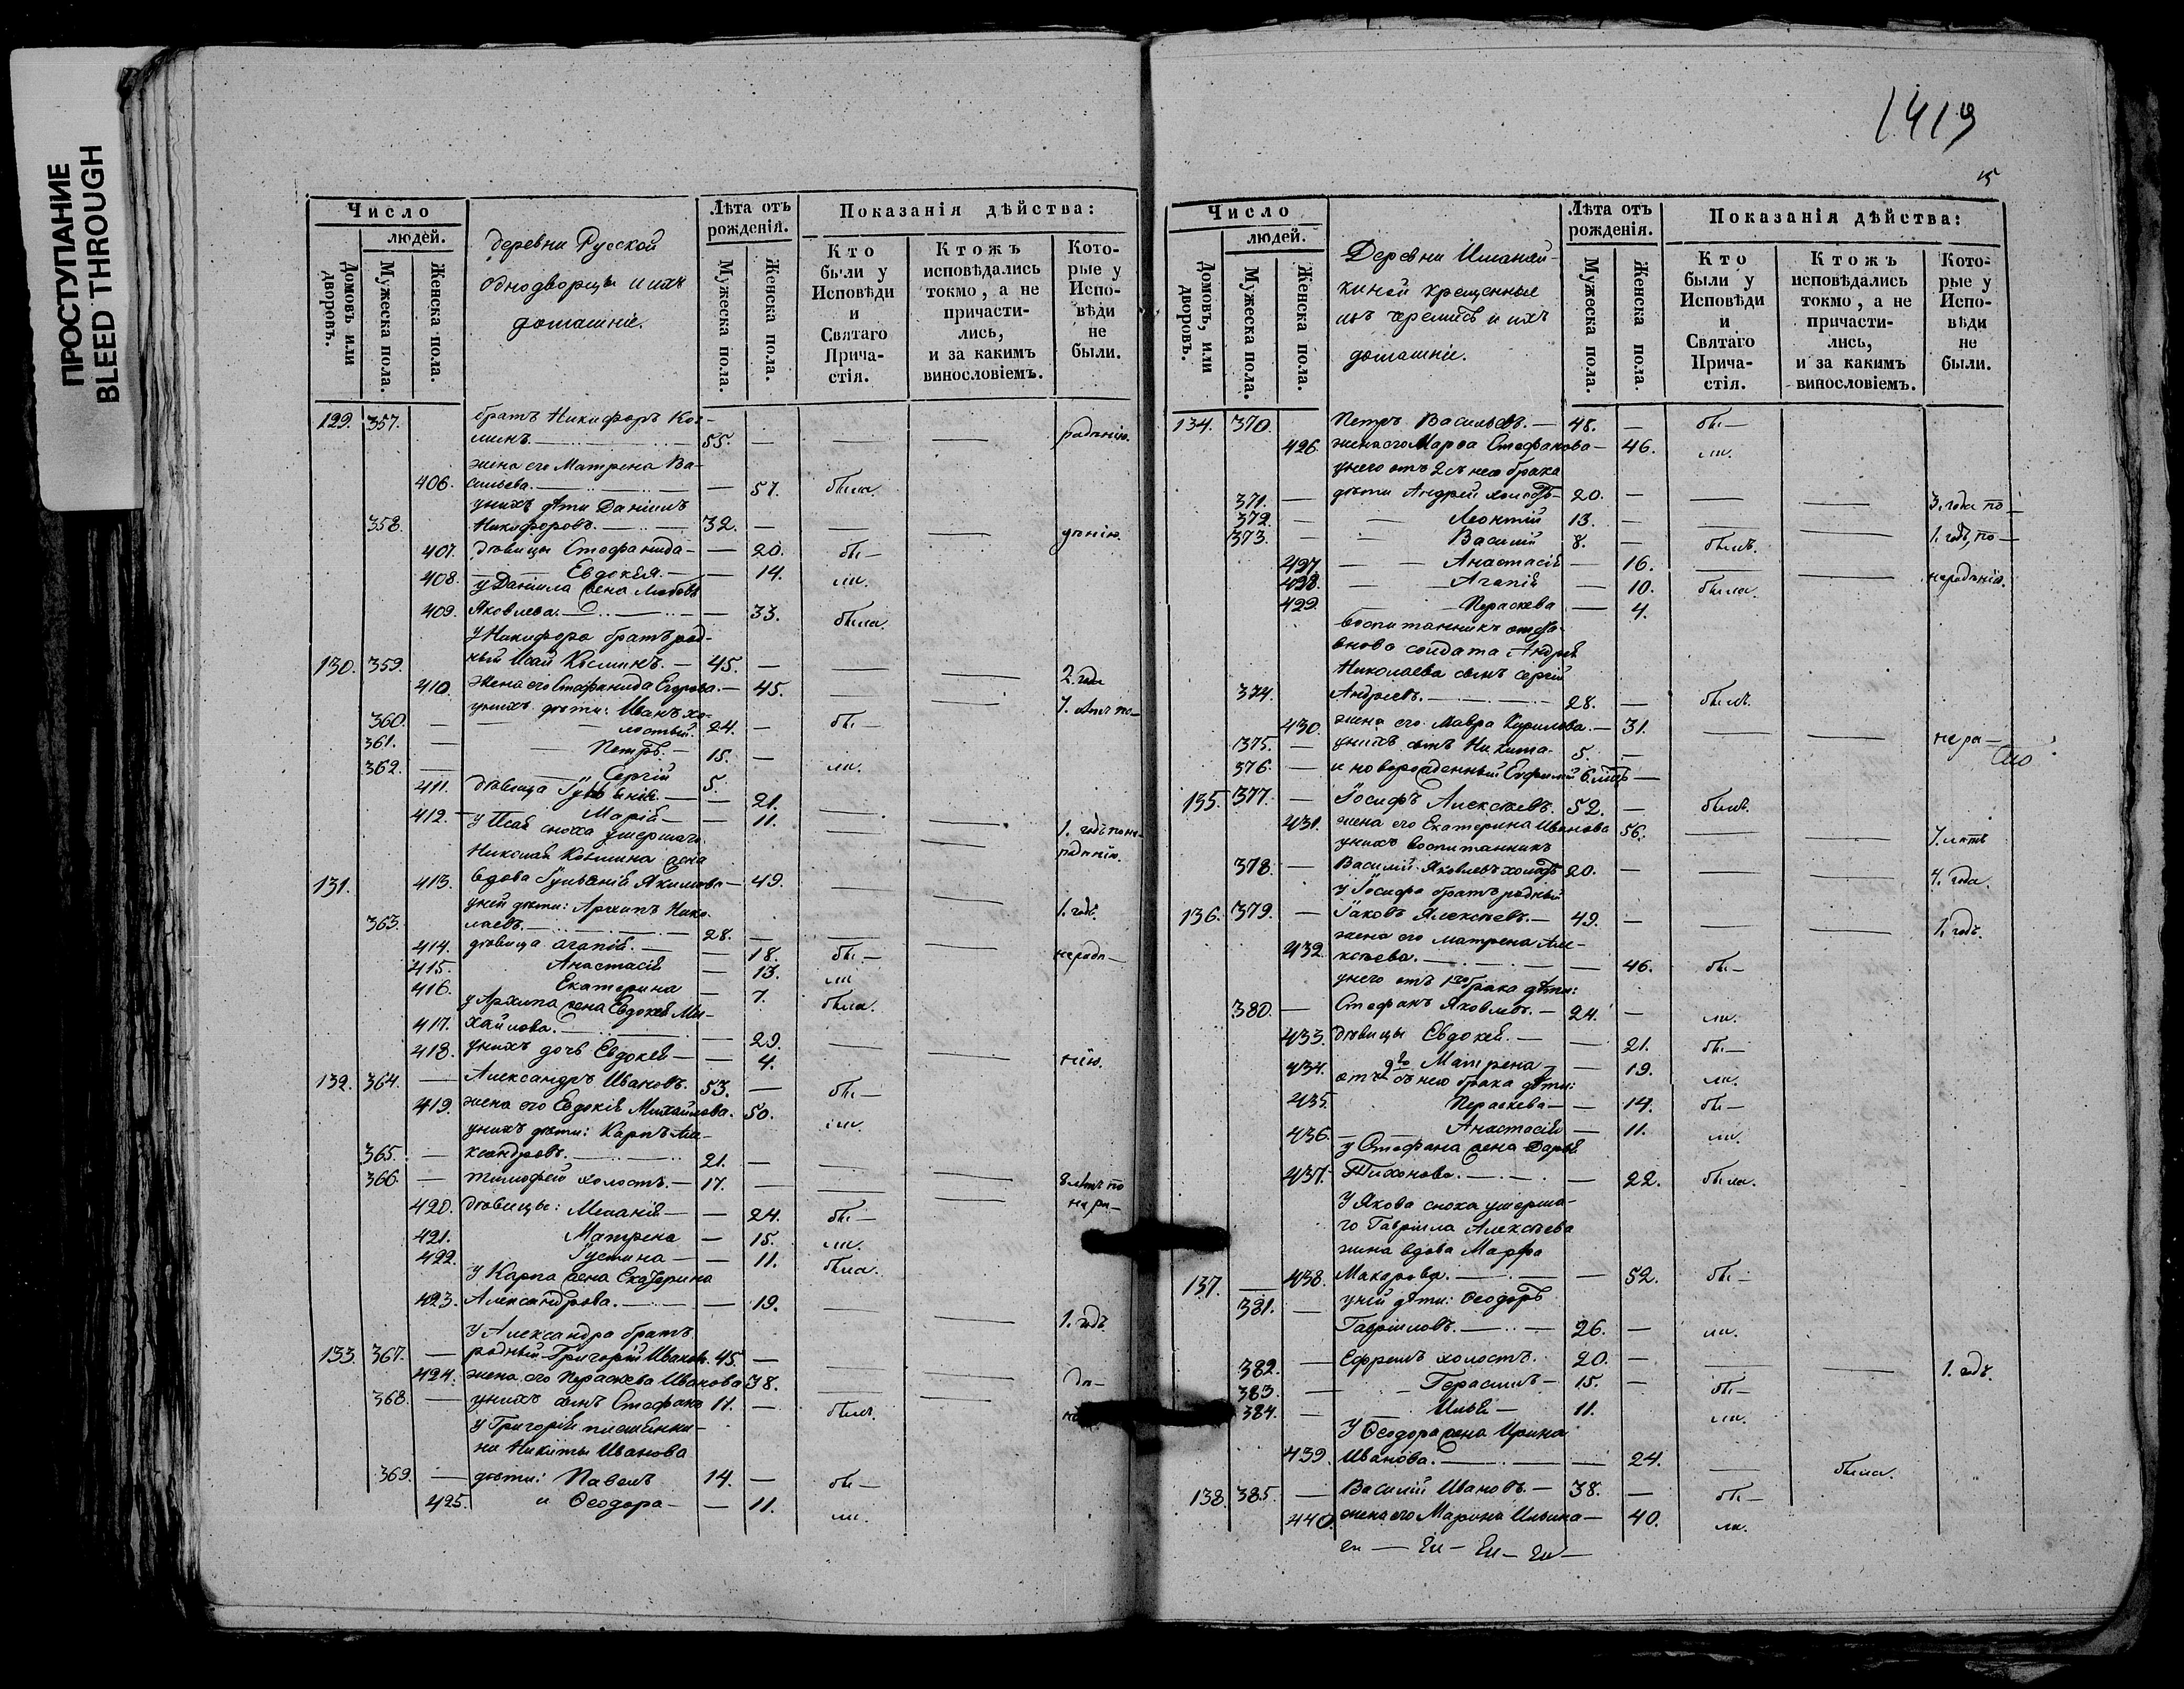 ПРОСТУПАНИЕ
BLEED THROUGH
Число
людей.
Домовъ или дворовъ.
Мужеска пола.
Женска пола.
деревни Русской
однодворцы и ихъ
домашніе.
Лѣта отъ
рожденія.
Мужеска пола.
Женска пола.
Показанія дѣйства:
Кто
были у
Исповѣди
и
Святаго
Прича-
стія.
Ктожъ
исповѣдались
токмо, а не
причасти-
лись,
и за какимъ
винословіемъ.
Кото-
рые у
Испо-
вѣди
не
были.
129. 357. братъ Никифоръ Коз-
минъ. 55. — — — радѣнію.
жена его Матрена Ва-
406. сильева. — 57. была.
у нихъ дѣти Даніилъ
358. Никифоровъ. 32. — — —
407. дѣвицы Стефанида — 20. бы —
408. Евдокія. — 14. ли.
у Даніила жена Любовь
409. Яковлева. — 33. была.
у Никифора братъ род-
130. 359. ный Исай Козминъ. — 45. — — — 2. года
410. жена его Стефанида Егорова. — 45. — — 7. лѣтъ по —
у нихъ дѣти: Иванъ хо-
360. — лостый. 24. — бы —
361. — Петръ. — 15. — ли.
362. — Сергій 5.
411. дѣвица — 21. — —
412. Марія — 11. — — 1. годъ по не-
у Исая сноха умершаго радѣнію.
Николая Козмина жена
131. 413. вдова Акимова — 49. — — 1. годъ.
у ней дѣти: Архипъ Нико-
363. лаевъ. 28. — — —
414. дѣвица Агапія. — 18. бы — нерадѣ —
415. Анастасія — 13. ли
416. Екатерина — 7. была.
у Архипа жена Евдокія Ми-
417. хайлова. — 29. — —
418. у нихъ дочь Евдокія — 4. нію.
132. 364. — Александръ Ивановъ. 53. — бы —
419. жена его Евдокія Михайлова. 50. ли.
у нихъ дѣти: Карпъ Але-
365. — ксандровъ. 21. — — —
366. — Тимофей холостъ. — 17. — — — 8 лѣтъ по
420. дѣвицы: Меланія — 24. бы — нера —
421. Матрена — 15. ли.
422. Густина — 11. была.
у Карпа жена Екатерина
423. Александрова. — 19. — — 1. годъ
у Александра братъ
133. 367. — родный Григорій Ивановъ. 45. — — —
424. жена его Параскева Иванова 38. — — дѣ —
368. — у нихъ сынъ Стефанъ 11. — былъ.
у Григорія племянни-
ки Никиты Иванова
369. — дѣти: Павелъ 14. — бы —
425. и Ѳеодора — 11. ли.
1419
15
Число
людей.
Домовъ, или дворовъ.
Мужеска пола.
Женска пола.
Деревни
крещенные
изъ черемисъ и ихъ
домашніе.
Лѣта отъ
рожденія.
Мужеска пола.
Женска пола.
Показанія дѣйства:
Кто
были у
Исповѣди
и
Святаго
Прича-
стія.
Ктожъ
исповѣдались
токмо, а не
причасти-
лись,
и за какимъ
винословіемъ.
Кото-
рые у
Испо-
вѣди
не
были.
134. 370. Петръ Васильевъ. — 48. — бы —
426. жена его Марѳа Стефанова — 46. ли.
у него отъ 2 съ нею брака
371. — дѣти Андрей холостъ — 20. — — — 3. года по —
372. — Леонтій 13. — — — 1. годъ, по —
373. — Василій 8. — былъ.
427. — Анастасія — 16. — — нерадѣнію.
428. — Агапія — 10. была.
429. — Параскева — 4.
воспитанникъ отста-
внова солдата Андрея
Николаева сынъ Сергій
374. Андреевъ. 28. — былъ.
430. жена его Мавра Кирилова. — 31. — — нера —
375. — у нихъ сынъ Никита — 5. —
376. — и новорожденный 6. мѣс. —
135. 377. — Іосифъ Алексѣевъ. 52. — былъ.
431. жена его Екатерина Иванова 56. — — 7. лѣтъ
у нихъ воспитанникъ
378. — Василій Яковлевъ холостъ 20. — — — 4. года.
у Іосифа братъ родный
136. 379. — Іаковъ Алексѣевъ. — 49. — — — 1. годъ.
жена его Матрена Але-
432. ксѣева. — 46. бы —
у него отъ 1го брака дѣти:
380. — Стефанъ Яковлевъ. — 24. — ли.
433. дѣвицы Евдокія. — 21. бы —
434. Матрена — 19. ли.
отъ 2го съ нею брака дѣти:
435. Параскева — 14. бы —
436. — Анастасія — 11. ли.
у Стефана жена Дарья
437. Тихонова. — 22. была.
У Якова сноха умерша-
го Гавріила Алексѣева
жена вдова Марѳа
137. — 438. Макарова. — 52. бы —
381. — у ней дѣти: Ѳеодоръ
Гавріиловъ. 26. — ли.
382. — Ефремъ холостъ. 20. — — — 1. годъ.
383. — Герасимъ — 15. — бы —
384. — Илья — 11. ли.
У Ѳеодора жена Ирина
439. Иванова. — 24. — была.
138. 385. — Василій Ивановъ. — 38. — бы —
440. жена его Марина Ильина — 40. ли.